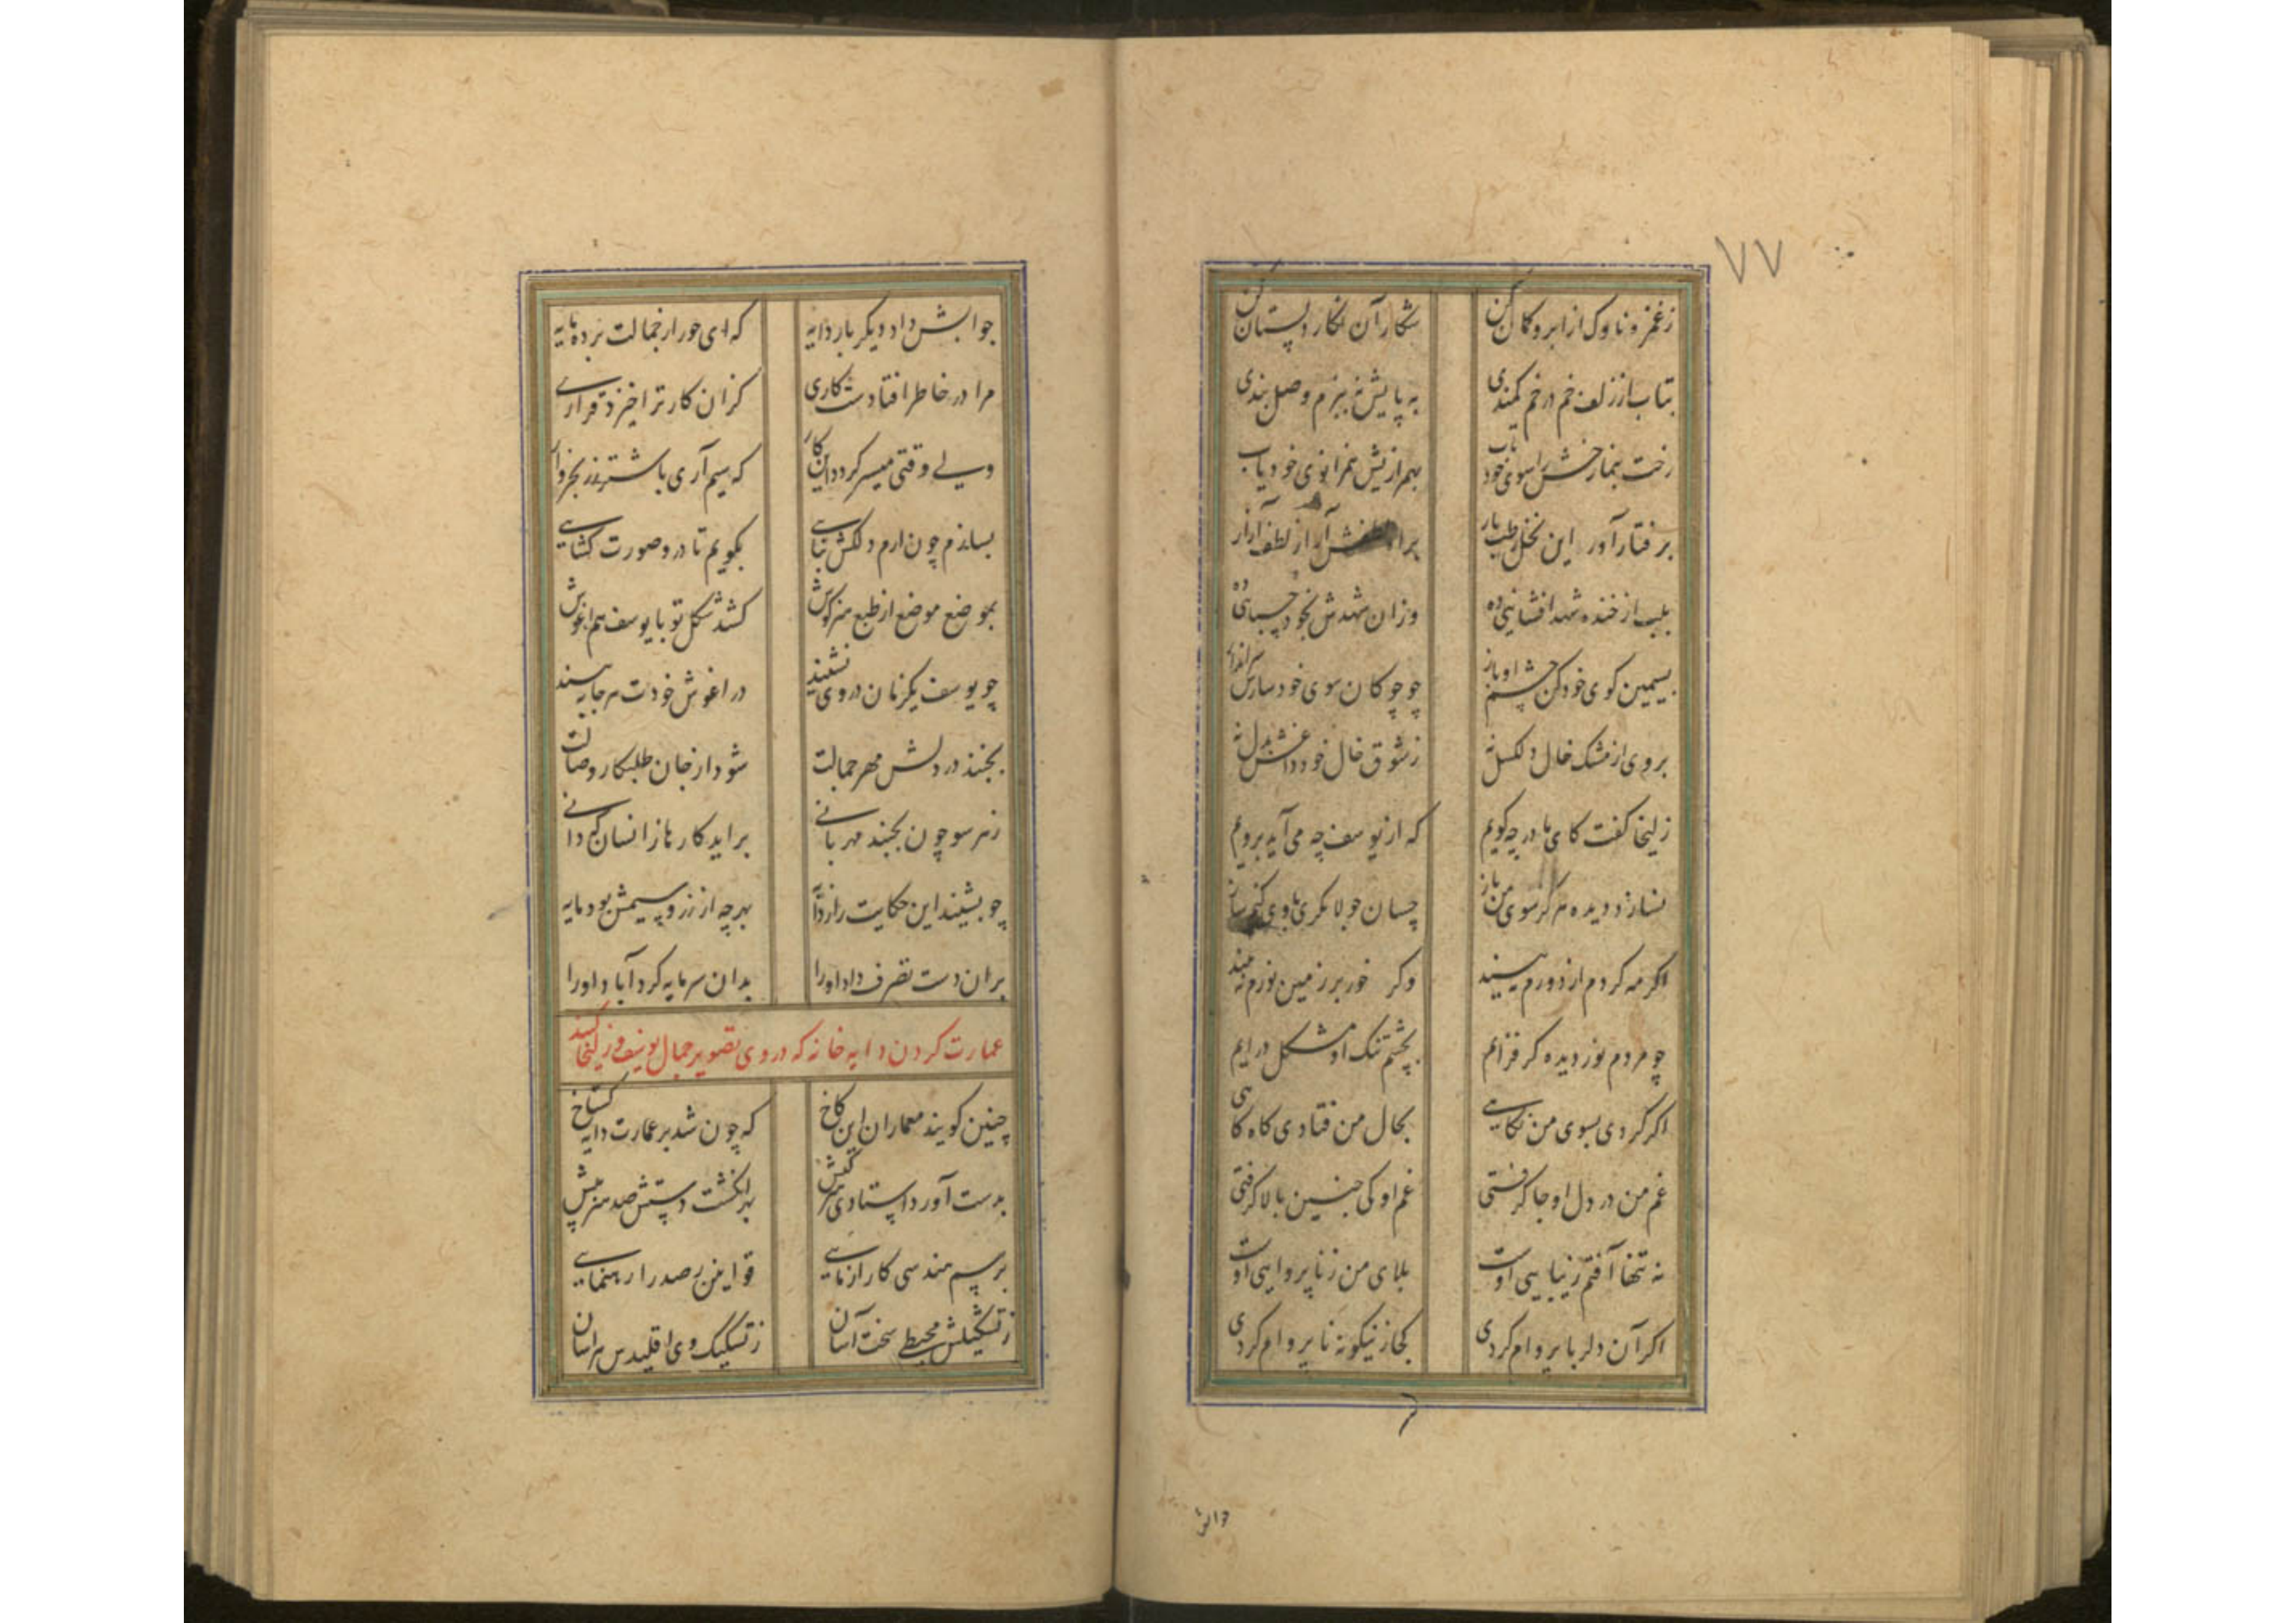 ٧٧
زغمزه ناوک از ابرو کمان کن شکار آن نکار دلستان کن
بتاب از زلف خم در خم کمندی به پایش نه ببزم وصل بندی
رخت بنما رخش را سوی خود تاب
برفتار آور این نخل رطب بار براه لطفش آر از لطف آزار
بلب از خنده شهد افشانیی ده وزان شهدش بخود
بسیمین کوی خود کن چشم او باز چو چوکان سوی خود سرانداز
بروی از مشک خال دلکسل نه زشوق خال خود داغش بدل نه
زلیخا کفت کای مادر چه کویم که از یوسف چه می آید برویم
نسازد دیده هرکز سوی من باز چسان جولانکری با وی کنم ساز
اکر مه کردم از دورم نبیند وکر خور بر زمین نورم نبیند
چو مردم نور دیده کر فزایم بچشم تنک او مشکل درایم
اکر کردی بسوی من نکاهی بحال من فتادی کاه کاهی
غم من در دل او جا کرفتی غم او کی چنین بالا کرفتی
نه تنها آفتم زیبایی اوست بلای من زناپروایی اوست
اکر آن دلربا پروام کردی کجا زینکونه ناپروام کردی
جوابش
جوابش داد دیکر بار دایه که ای حور از جمالت برده مایه
مرا در خاطر افتادست کاری کزان کار ترا خیزد قراری
ولی وقتی میسر کردد این کار که سیم آری باشتر زر بخروار
بسازم چون ارم دلکش بنایی بکویم تا درو صورت کشایی
بموضع موضع از طبع هنرکوش کشد شکل تو با یوسف هم اغوش
چو یوسف یکزمان در وی نشیند در اغوش خودت هر جا ببیند
بجنبد در دلش مهر جمالت شود از جان طلبکار وصالت
زهر سو چون بجنبد مهربانی براید کارها زانسان که دانی
چو بشنید این حکایت را ز دایه بهر چه از زر و سیمش بود مایه
بران دست تصرف داد او را بدان سرمایه کرد آباد او را
عمارت کردن دایه خانه که در وی تصویر جمال یوسف و زلیخا کنند
چنین کویند معماران این کاخ که چون شد بر عمارت دایه کستاخ
بدست آورد استادی هنر کیش بهر انکشت دستش صد هنر بیش
برسم هندسی کار ازمایی قوانین رصد را رهنمایی
زتشکیلش مجسطی سخت آسان زتشکیک وی اقلیدس هراسان